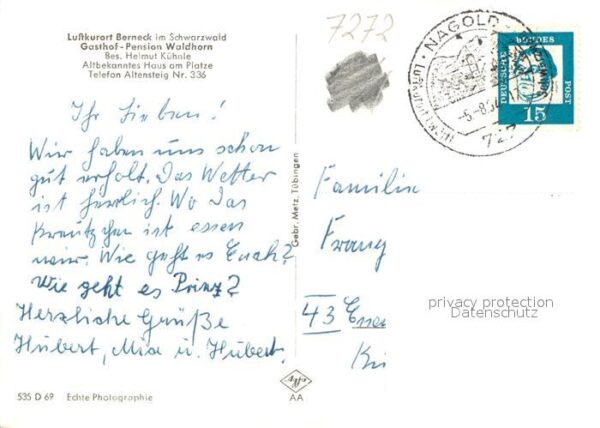 7272
Luftkurort Berneck im Schwarzwald
Gasthof-Pension Waldhorn
Bes. Helmut Kühnle
Altbekanntes Haus am Platze
Telefon Altensteig Nr. 336
NAGOLD
DEUTSCHE BUNDESPOST
15
Ihr Lieben!
Wir haben uns schon
gut erholt. Das Wetter
ist herrlich. Wo das
Kreutzchen ist essen
wir. Wie geht es Euch?
Wie geht es Prinz?
Herzliche Grüße
Hubert, Mia u. Hubert.
Gebr. Metz, Tübingen
Familie
Franz
43 Essen
privacy protection
Datenschutz
535 D 69 Echte Photographie
AA